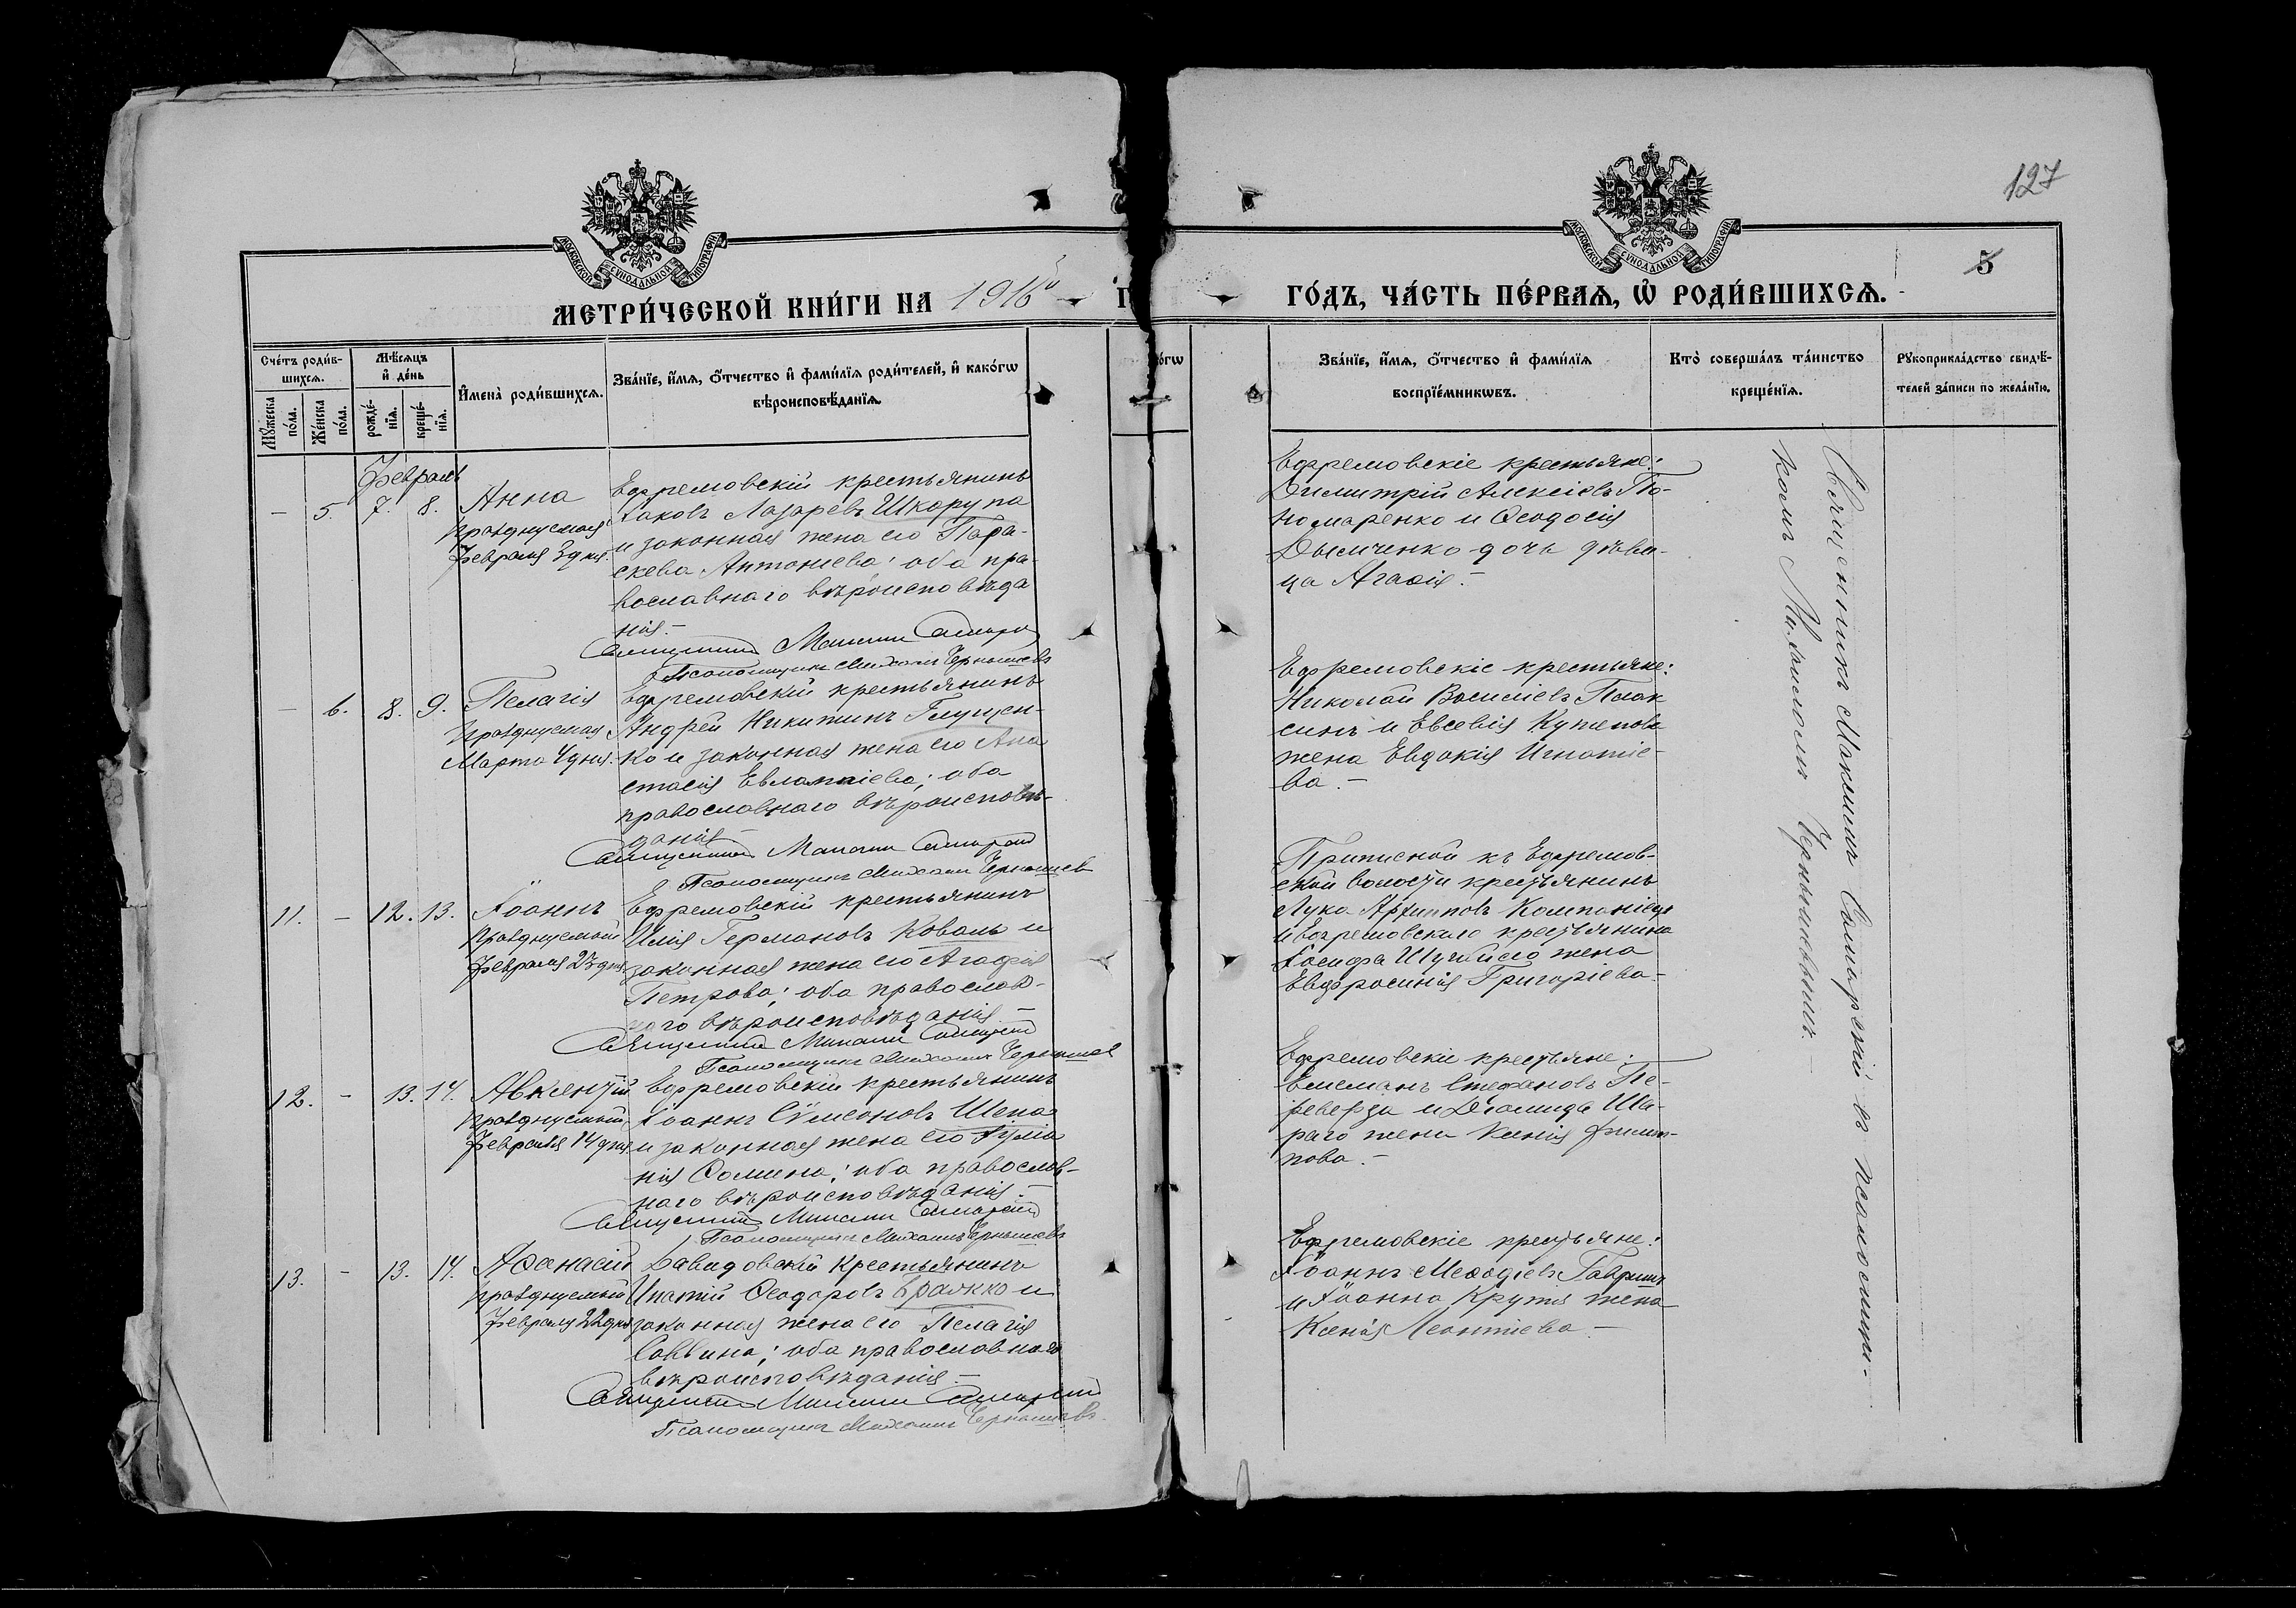 127
МОСКОВСКОЙ СѴНОДАЛЬНОЙ ТИПОГРАФІИ
МОСКОВСКОЙ СѴНОДАЛЬНОЙ ТИПОГРАФІИ
5
МЕТРИ́ЧЕСКОЙ КНИ́ГИ НА 1916й
ГО́ДЪ, ЧА́СТЬ ПЕ́РВАѦ, Ѡ҆ РОДИ́ВШИХСѦ.
Сче́тъ роди́в-
шихсѧ.
Мѹ́жеска
по́ла.
Же́нска
по́ла.
Мѣ́сѧцъ
и҆ де́нь
рожде́-
нїѧ.
креще́-
нїѧ.
И҆мена̀ роди́вшихсѧ.
Зва́нїе, и҆́мѧ, ѻ҆́тчество и҆ фами́лїѧ роди́телей, и҆ како́гѡ
вѣроисповѣ́данїѧ.
Зва́нїе, и҆́мѧ, ѻ҆́тчество и҆ фами́лїѧ
воспрїе́мникѡвъ.
Кто̀ соверша́лъ та́инство
креще́нїѧ.
Рѹкоприкла́дство свидѣ́-
телей за́писи по жела́нїю.
Февраль
– 5. 7. 8. Анна
празднуемая
Февраля 3 дня.
Ефремовскій крестьянинъ
Іаковъ Лазаревъ Шкарупа
и законная жена его Пара-
скева Антоніева; оба пра-
вославнаго вѣроисповѣда
нія.–
Священникъ Максимъ Самарскій
Псаломщикъ Михаилъ Чернышевъ
Ефремовскіе крестьяне:
Димитрій Алексіевъ По-
номаренко и Ѳеодосія
Дымченко дочь дѣви-
ца Агаѳія.–
– 6. 8. 9. Пелагія
празднуемая
Марта 4 дня.
Ефремовскій крестьянинъ
Андрей Никитинъ Глущен-
ко и законная жена его Ана
стасія Евлампіева; оба
православнаго вѣроисповѣ-
данія –
Священникъ Максимъ Самарскій
Псаломщикъ Михаилъ Чернышевъ
Ефремовскіе крестьяне:
Николай Василіевъ Плак
синъ и Евсевія Кутепова
жена Евдокія Игнатіе-
ва.–
11. – 12. 13. Іоаннъ
празднуемый
Февраля 23 дня
Ефремовскій крестьянинъ
Илія Германовъ Коваль и
законная жена его Агафія
Петрова; оба православ-
наго вѣроисповѣданія –
Священникъ Максимъ Самарскій
Псаломщикъ Михаилъ Чернышевъ
Приписной къ Ефремов-
ской волости крестьянинъ
Лука Архиповъ Компаніецъ
и Ефремовскаго крестьянина
Іосифа жена
Евфросинія Григоріева.–
12. – 13. 14. Авксентій
празднуемый
Февраля 14 дня
Ефремовскій крестьянинъ
Іоаннъ Сѵмеоновъ Шепа
и законная жена его Іуліа
нія Ѳомина; оба православ-
наго вѣроисповѣданія.–
Священникъ Максимъ Самарскій
Псаломщикъ Михаилъ Чернышевъ
Ефремовскіе крестьяне:
Стефановъ Пе-
реверза и Діомида Ша-
раго жена Ксенія Филип-
пова.–
13. – 13. 14. Аѳанасій
празднуемый
Февраля 22 дня
Давидовскій крестьянинъ
Ипатій Ѳеодоровъ Бражко и
законная жена его Пелагія
Саввина; оба православнаго
вѣроисповѣданія –
Священникъ Максимъ Самарскій
Псаломщикъ Михаилъ Чернышевъ
Ефремовскіе крестьяне:
Іоаннъ Меѳодіевъ
и Іоанна Крутя жена
Ксенія Леонтіева –
Священникъ Максимъ Самарскій съ псаломщи-
комъ Михаиломъ Чернышевымъ.–